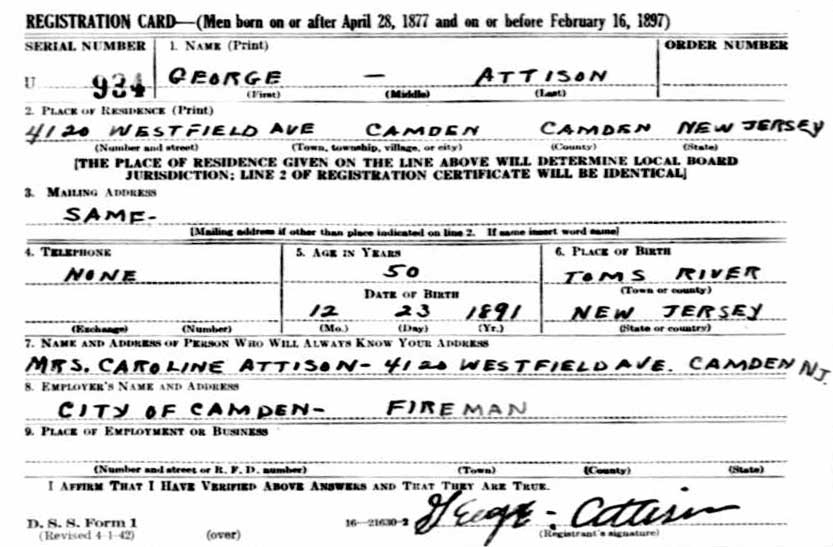 REGISTRATION CARD—(Men born on or after April 28, 1877 and on or before February 16, 1897)
SERIAL NUMBER 1. NAME (Print) ORDER NUMBER
U 934 GEORGE — ATTISON
(First) (Middle) (Last)
2. PLACE OF RESIDENCE (Print)
4120 WESTFIELD AVE CAMDEN CAMDEN NEW JERSEY
(Number and street) (Town, township, village, or city) (County) (State)
[THE PLACE OF RESIDENCE GIVEN ON THE LINE ABOVE WILL DETERMINE LOCAL BOARD
JURISDICTION; LINE 2 OF REGISTRATION CERTIFICATE WILL BE IDENTICAL]
3. MAILING ADDRESS
SAME-
[Mailing address if other than place indicated on line 2. If same insert word same]
4. TELEPHONE 5. AGE IN YEARS 6. PLACE OF BIRTH
NONE 50 TOMS RIVER
DATE OF BIRTH (Town or county)
12 23 1891 NEW JERSEY
(Exchange) (Number) (Mo.) (Day) (Yr.) (State or country)
7. NAME AND ADDRESS OF PERSON WHO WILL ALWAYS KNOW YOUR ADDRESS
MRS. CAROLINE ATTISON- 4120 WESTFIELD AVE. CAMDEN NJ.
8. EMPLOYER'S NAME AND ADDRESS
CITY OF CAMDEN- FIREMAN
9. PLACE OF EMPLOYMENT OR BUSINESS
(Number and street or R. F. D. number) (Town) (County) (State)
I AFFIRM THAT I HAVE VERIFIED ABOVE ANSWERS AND THAT THEY ARE TRUE.
D. S. S. Form 1 16—21630-2 George - Attison
(Revised 4-1-42) (over) (Registrant's signature)